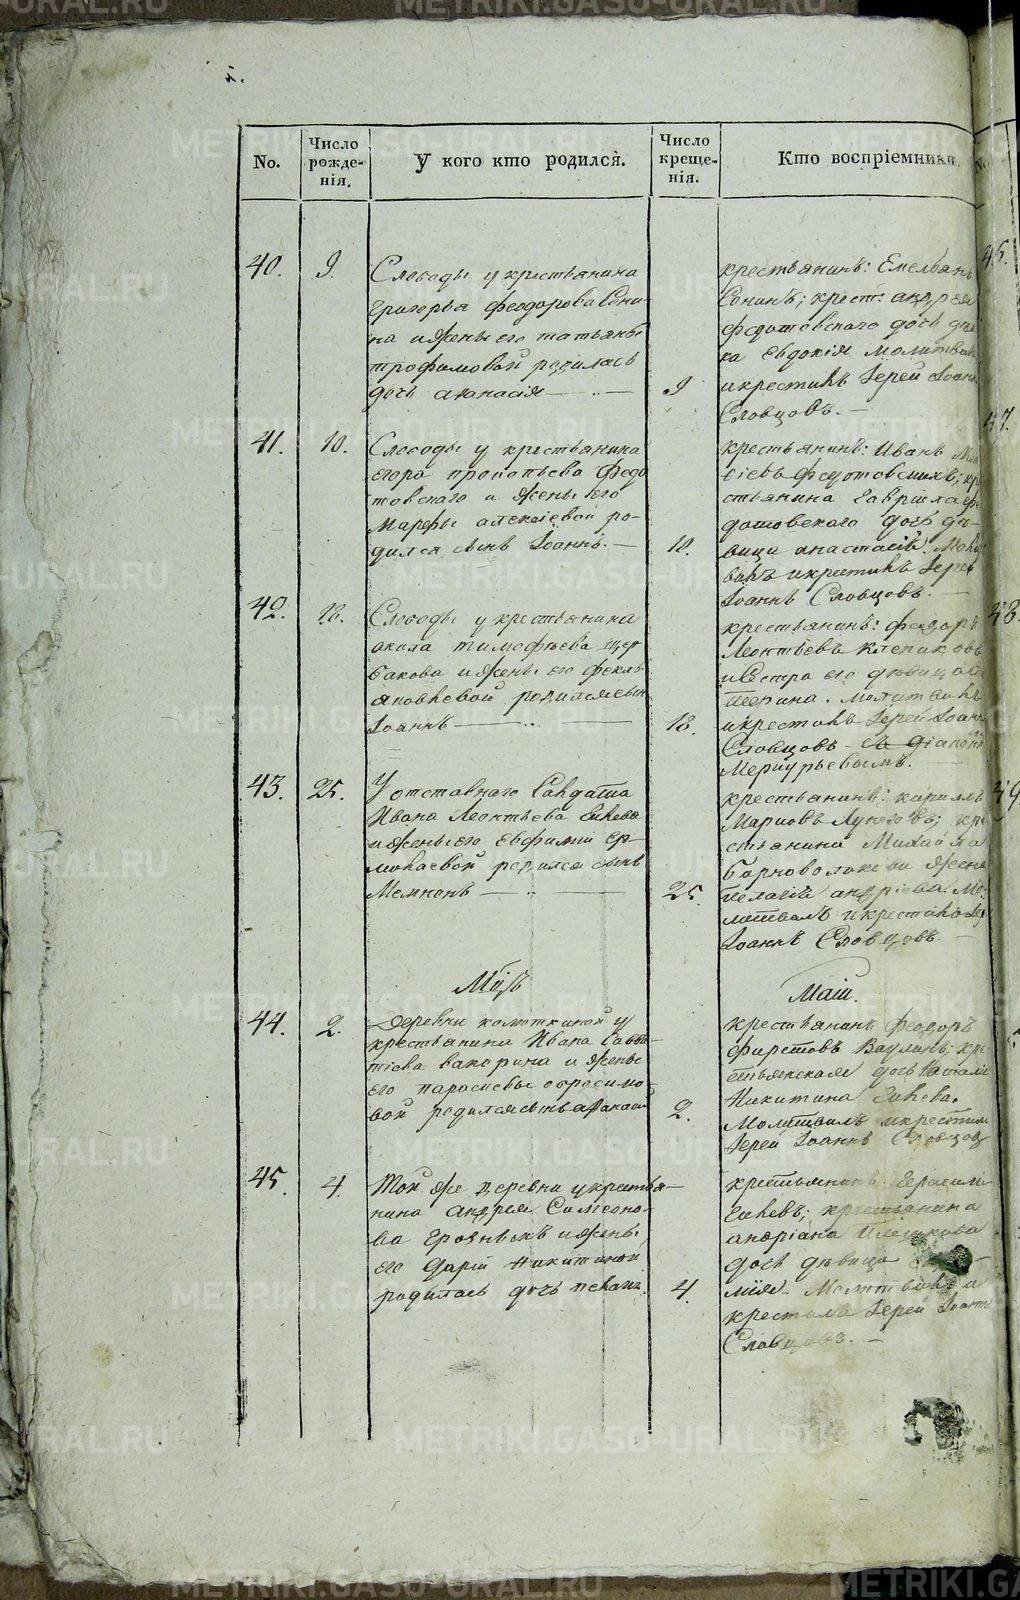 No.
Число рожде-нія.
У кого кто родился.
Число креще-нія.
Кто воспріемники
40.
9.
Слободы у крестьянина
Григорья Феодорова Сони-
на и жены его татьяны
трофимовой родилась
дочь афанасія
9
крестьянинъ: Емельянъ
Сонинъ; крест: андрея
федотовскаго дочь дѣви
ка Евдокія молитвилъ
и крестилъ Іерей Іоаннъ
Словцовъ.
41.
10.
Слободы у крестьянина
егора прокопьева Федо
товскаго и жены его
Марфы алексіевой ро-
дился сынъ Іоаннъ.
10.
крестьянинъ: Иванъ
Федотовскихъ; кре
стьянина Гаврила фе
дотовскаго дочь дѣ-
вица анастасія. Молит
вилъ и крестилъ Іерей
Іоаннъ Словцовъ.
42.
18.
Слободы у крестьянина
акила тимофѣева щер
бакова и жены его фекл
родился сынъ
Іоаннъ
18.
крестьянинъ: феодоръ
Леонтьевъ Клепиковъ
и Сестра его дѣвица
терина. молитвилъ
и крестилъ Іерей Іоаннъ
Словцовъ
Меркурьевымъ.
43.
25.
У отставнаго Салдата
Ивана Леонтьева Гилева
и жены его Евфиміи Ер-
молаевой родился сынъ
Мемнонъ
25.
крестьянинъ: кирилъ
Марковъ; кре
стьянина Михаила
Черноволикова жена
пелагія андріева. Мо-
литвилъ и крестилъ Іер
Іоаннъ Словцовъ.
Мцъ
Маій.
44.
2.
Деревни у
крестьянина Ивана Савва-
тіева вахорина и жены
его парасковьи
вой родился сынъ афанасій
2.
крестьянинъ Феодоръ
Фирстовъ Ваулинъ; кре
стьянская дочь Наталія
Никитина Гилева.
Молитвилъ и крестилъ
Іерей Іоаннъ Словцовъ
45.
4.
Той же деревни у крестья-
нина андрея Симеоно-
ва и жены
его Даріи Никитиной
родилась дочь
4.
крестьянинъ Герасимъ
Гилевъ; крестьянина
андріана Плешкова
дочь дѣвица
мія. Молитвилъ и
крестилъ Іерей Іоаннъ
Словцовъ.
METRIKI.GASO-URAL.RU